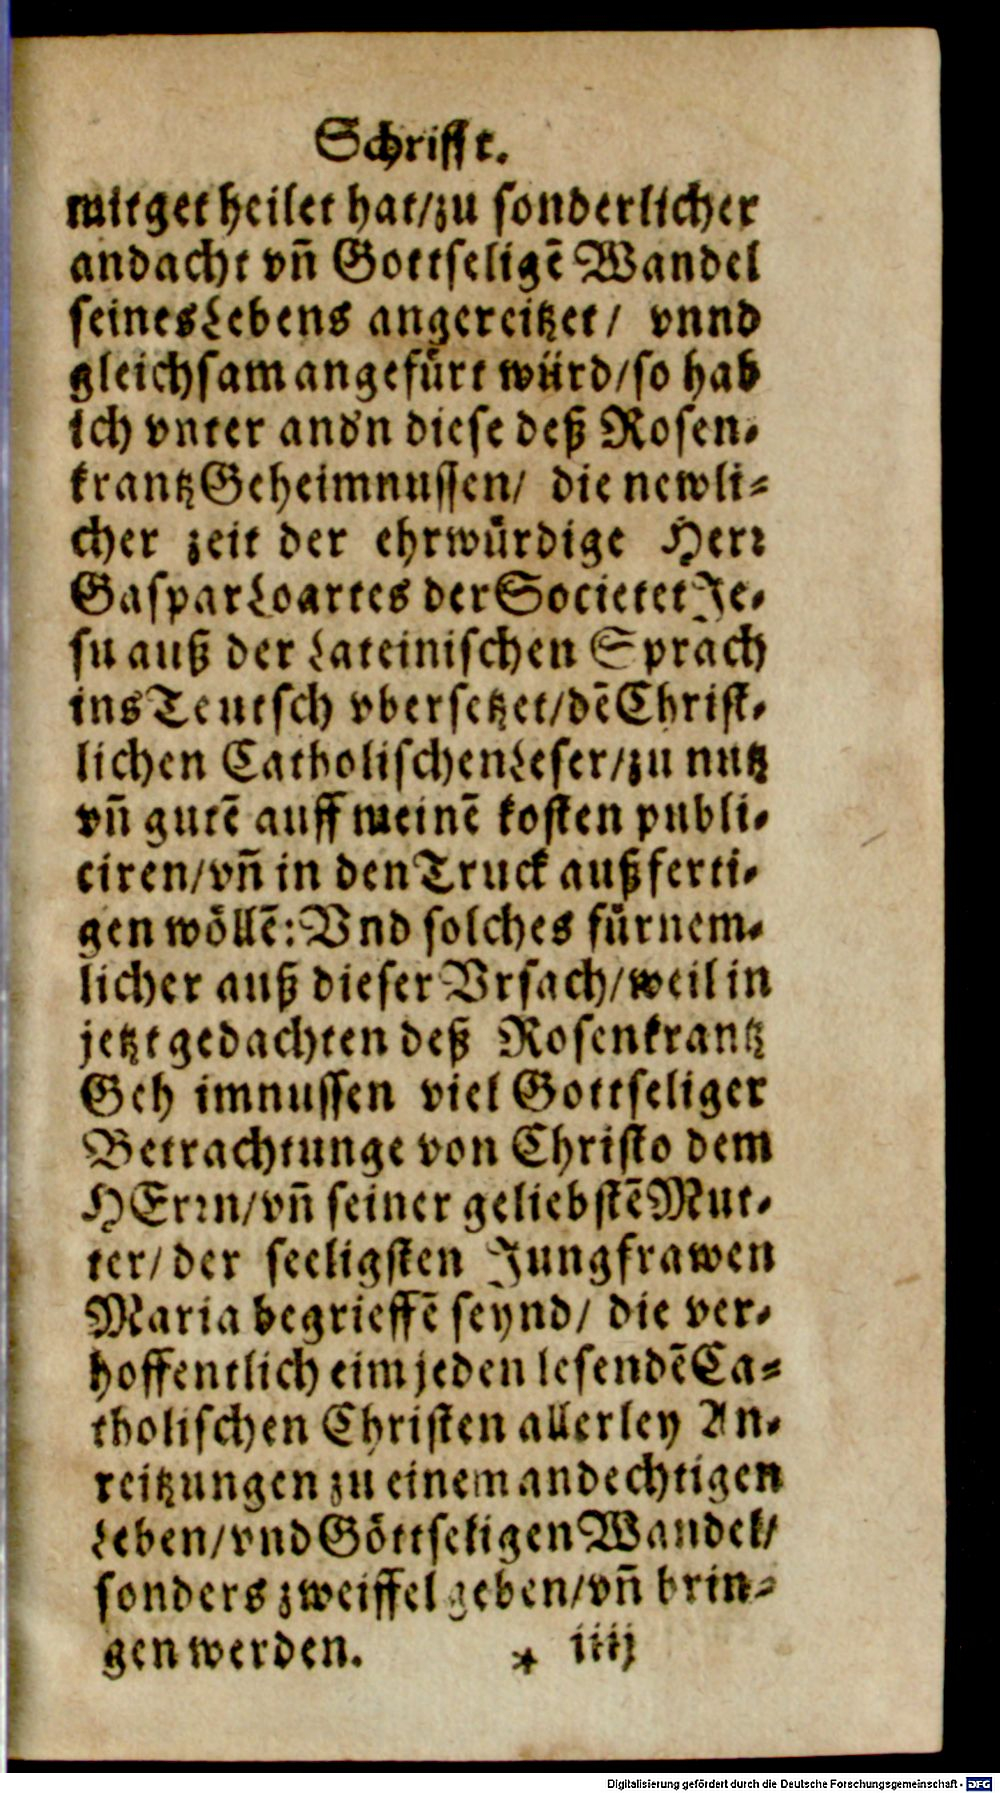 Schrifft.
mitgetheilet hat/zu sonderlicher
andacht vñ Gottseligē Wandel
seines Lebens angereitzet/ vnnd
gleichsam angefürt würd/so hab
ich vnter andn diese deß Rosen-
krantz Geheimnussen/ die newli-
cher zeit der ehrwürdige Herr
Gaspar Loartes der Societet Je-
su auß der Lateinischen Sprach
ins Teutsch vbersetzet/dē Christ-
lichen Catholischen Leser/zu nutz
vñ gutē auff meinē kosten publi-
ciren/vñ in den Truck außferti-
gen wöllē: Vnd solches fürnem-
licher auß dieser Vrsach/weil in
jetzt gedachten deß Rosenkrantz
Geh imnussen viel Gottseliger
Betrachtunge von Christo dem
HErrn/vñ seiner geliebstē Mut-
ter/der seeligsten Jungfrawen
Maria begrieffē seynd/ die ver-
hoffentlich eim jeden lesendē Ca-
tholischen Christen allerley An-
reitzungen zu einem andechtigen
Leben/vnd Göttseligen Wandel/
sonders zweiffel geben/vñ brin-
gen werden. * iiij
Digitalisierung gefördert durch die Deutsche Forschungsgemeinschaft - DFG